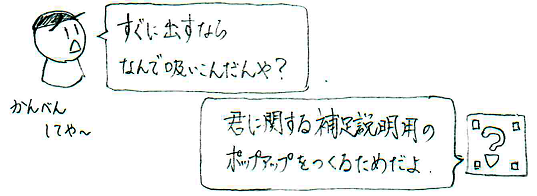 すぐに出すなら
なんで吸いこんだんや？
かんべん
してや〜
君に関する補足説明用の
ポップアップをつくるためだよ.
?